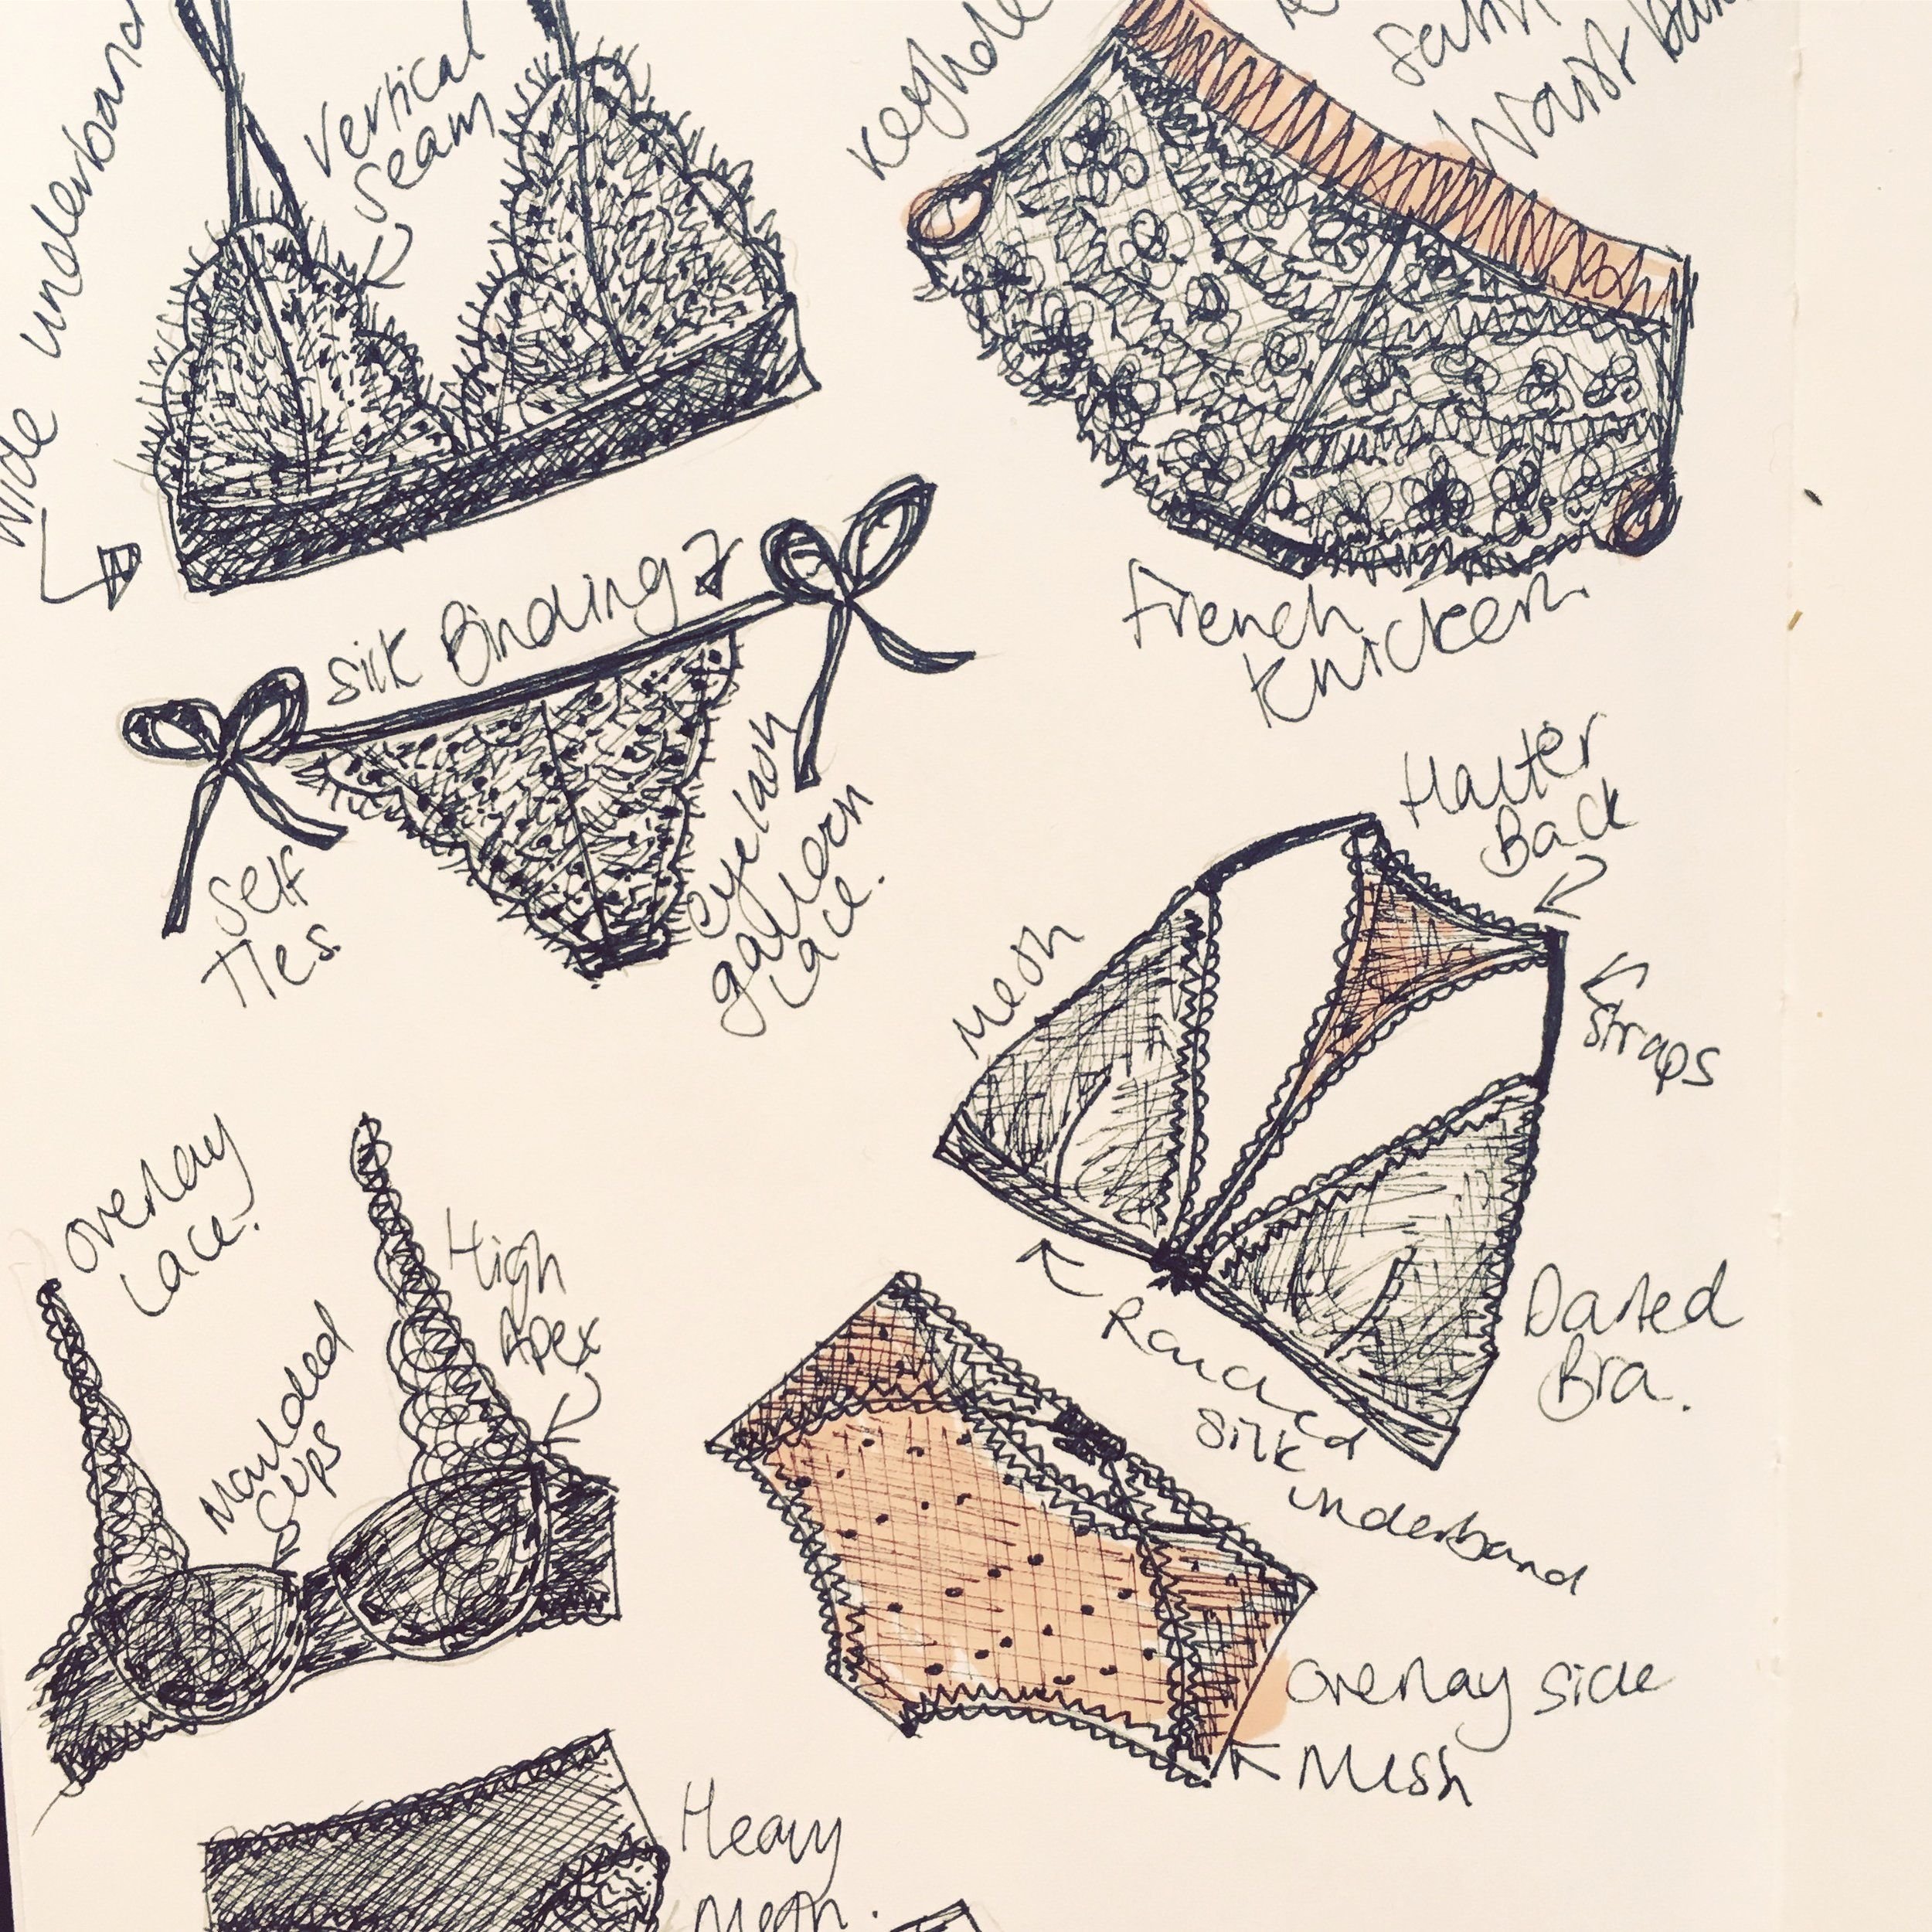 Wide underband
Vertical
Seam
Keyhole
Satin
Waist ban
Silk Binding
French
Knickers.
Self
Ties.
eyelash
galleon
Lace.
Halter
Back
Mesh
Straps
Overlay
Lace.
High
Apex
Moulded
Cups
Darted
Bra.
Rouched
Silk underband
Overlay side
Mesh
Heavy
Mesh.